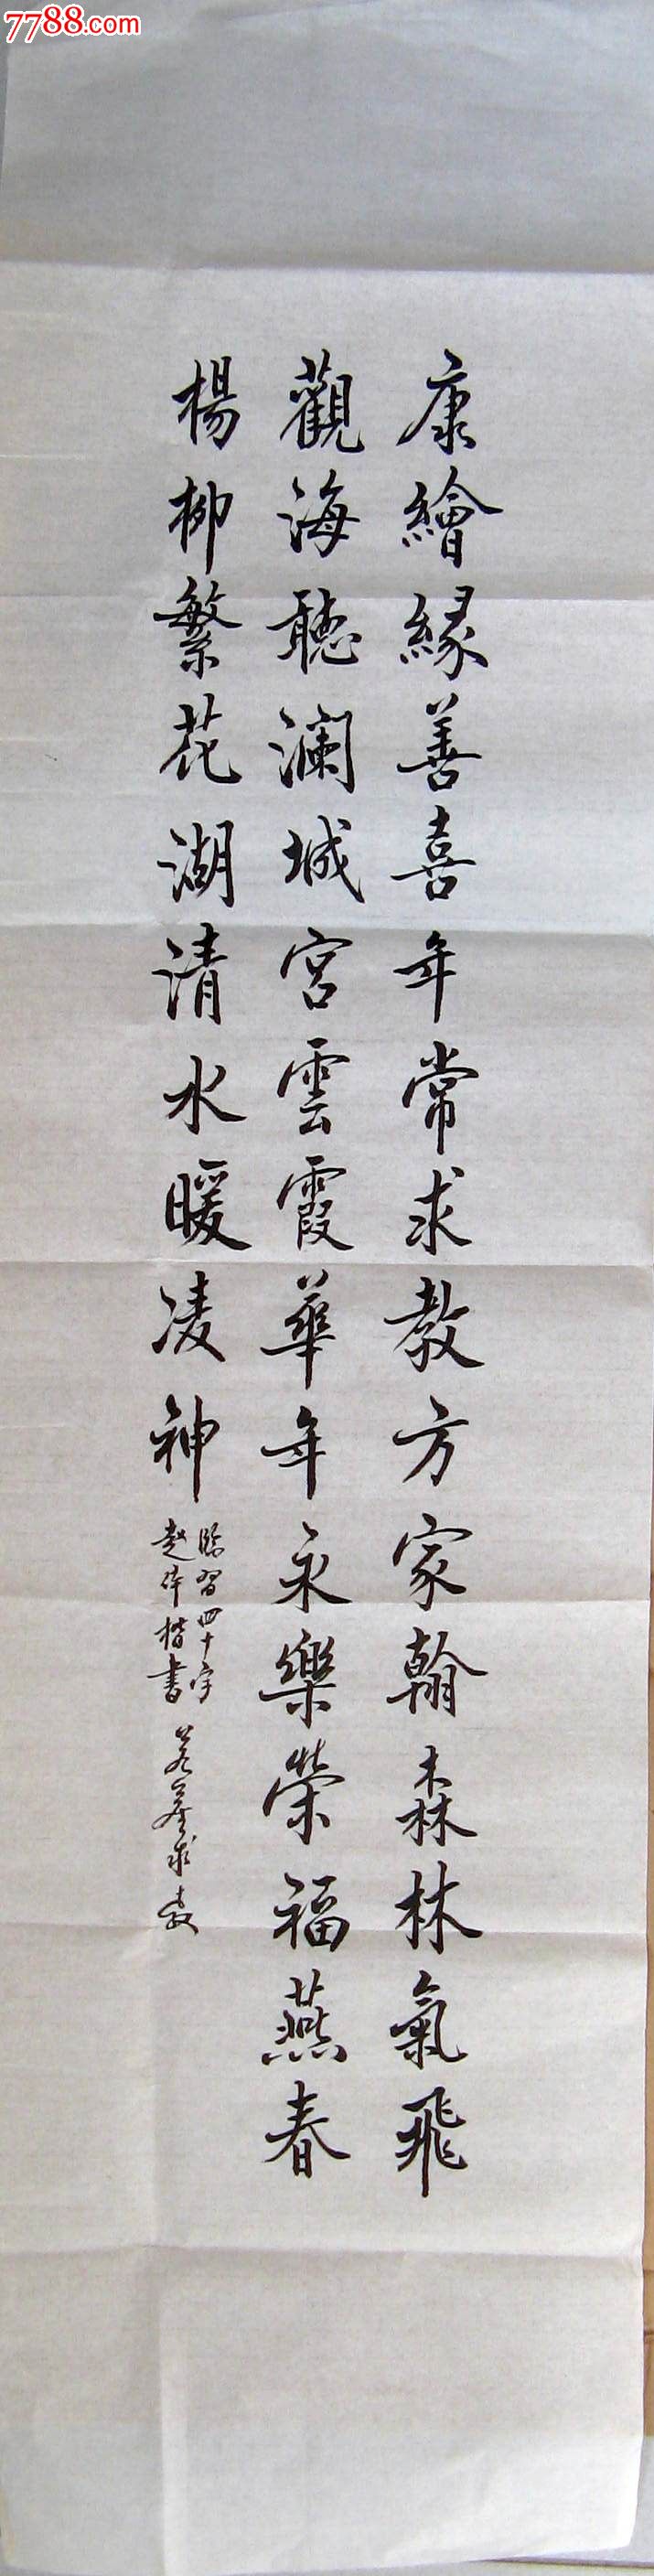 7788.com
康繪緣善喜年常求教方家翰森林氣飛
觀海聽澜城宮雲霞華年永樂榮福燕春
楊柳繁花湖清水暖凌神
臨習四十字
趙体楷書
求教